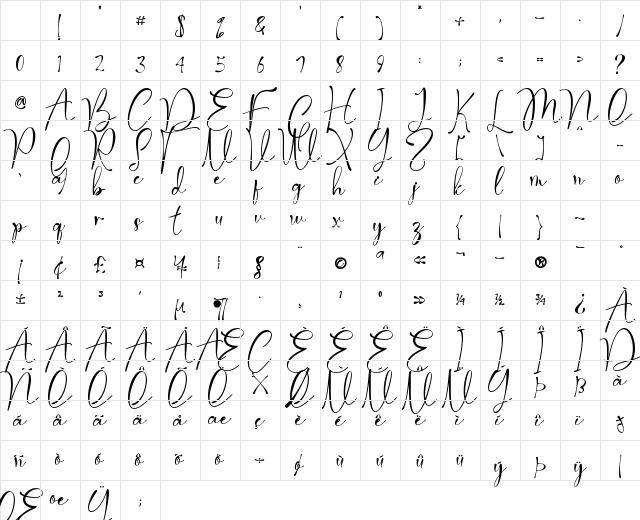 ! " # $ % & ' ( ) * + , - . /
0 1 2 3 4 5 6 7 8 9 : ; < = > ?
@ A B C D E F G H I J K L M N O
P Q R S T U V W X Y Z [ \ ] ^ _
` a b c d e f g h i j k l m n o
p q r s t u v w x y z { | } ~
¡ ¢ £ ¤ ¥ ¦ § ¨ © ª « ¬ - ® ¯ °
± ² ³ ´ µ ¶ · ¸ ¹ º » ¼ ½ ¾ ¿ À
Á Â Ã Ä Å Æ Ç È É Ê Ë Ì Í Î Ï Ð
Ñ Ò Ó Ô Õ Ö × Ø Ù Ú Û Ü Ý Þ ß à
á â ã ä å æ ç è é ê ë ì í î ï ð
ñ ò ó ô õ ö ÷ ø ù ú û ü ý þ ÿ |
Œ œ Ÿ ;